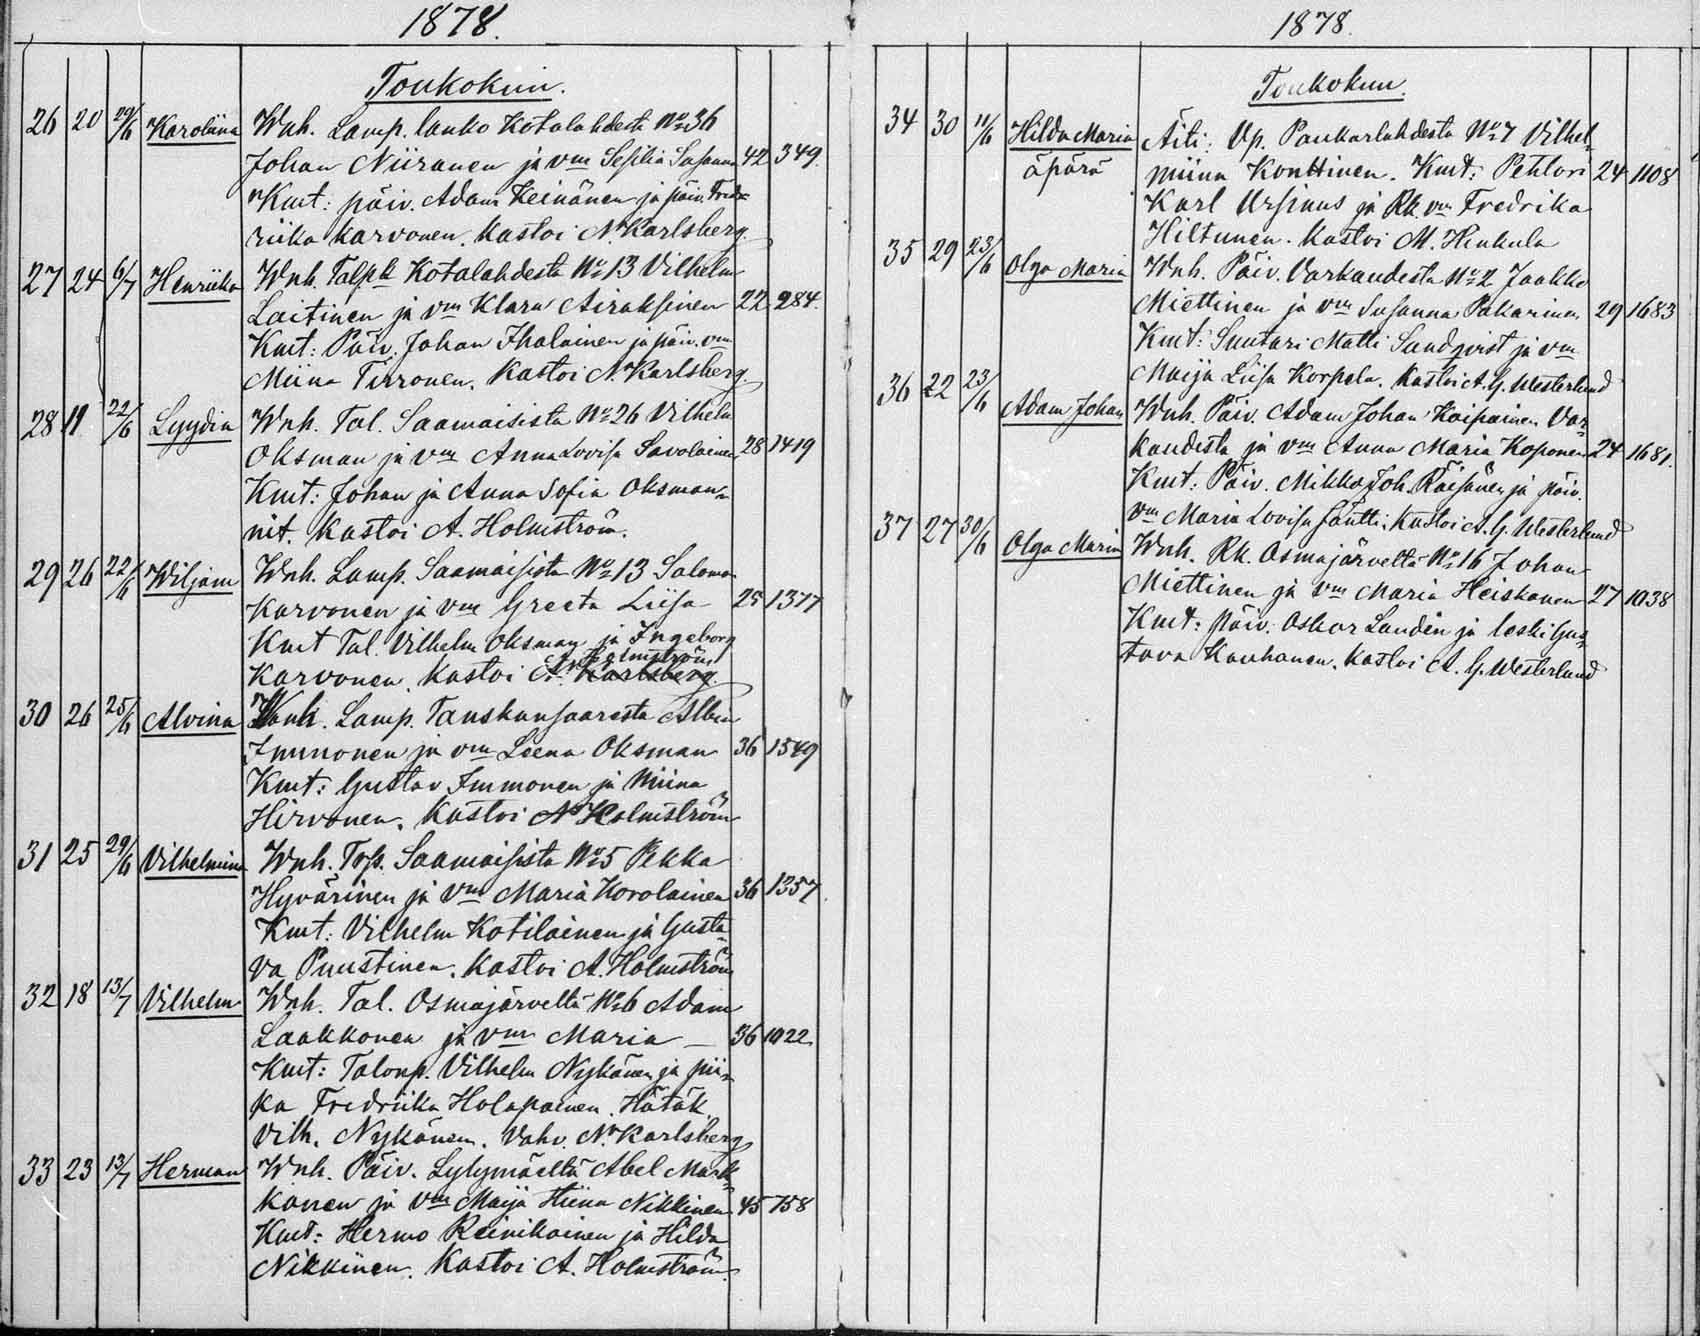 1878.
Toukokuu.
26 20 29/6 Karoliina Wnh. Lamp. lauko Kotalahdesta No 36
Johan Niiranen ja vm Sesilia Susanna 42 349.
Kmt: päiv. Adam Heinänen ja päiv. Fred-
riika Karvonen. Kastoi N. Karlsberg.
27 24 6/7 Henriika Wnh. Talpk Kotalahdesta No 13 Vilhelm
Laitinen ja vm Klara Airaksinen 22 284.
Kmt: Päiv. Johan Ihalainen ja päiv. vm
Miina Tirronen. Kastoi N. Karlsberg.
28 11 22/6 Lyydia Wnh. Tal. Saamaisista No 26 Vilhelm
Oksman ja vm Anna Lovisa Savolainen 28 1419
Kmt: Johan ja Anna Sofia Oksman-
nit. Kastoi A. Holmström.
29 26 22/6 Wiljam Wnh. Lamp. Saamaisista No 13 Salomo
Karvonen ja vm Greeta Liisa 25 1377
Kmt Tal. Vilhelm Oksman ja Ingeborg
Holmström
Karvonen. Kastoi A. Karlsberg.
30 26 25/6 Alvina Wnh. Lamp. Tanskansaaresta Albin
Immonen ja vm Leena Oksman 36 1549
Kmt: Gustav Immonen ja Miina
Hirvonen. Kastoi A Holmström
31 25 29/6 Vilhelmiina Wnh. Top. Saamaisista No 5 Pekka
Hyvärinen ja vm Maria Korolainen 36 1357.
Kmt: Vilhelm Kotilainen ja Gusta-
va Puustinen. Kastoi A. Holmström
32 18 13/7 Vilhelm Wnh. Tal. Osmajärveltä No 6 Adam
Laakkonen ja vm Maria — 36 1022.
Kmt: Talonp. Vilhelm Nykänen ja pii-
ka Fredriika Holapainen. Hätäk.
Vilh. Nykänen. Vahv. N. Karlsberg
33 23 13/7 Herman Wnh. Päiv. Lylymäeltä Abel Mark-
kanen ja vm Maija Hiina Nikkinen 45 758
Kmt: Hermo Reinikainen ja Hilda
Nikkinen. Kastoi A. Holmström.
1878.
Toukokuu.
34 30 11/6 Hilda Maria Äiti: Vp. Paukarlahdesta No 7 Vilhel-
äpärä miina Konttinen. Kmt: Pehtori 24 1108
Karl Ursinus ja Rk. vm Fredrika
Hiltunen. Kastoi M. Hinkula
35 29 23/6 Olga Maria Wnh. Päiv. Varkaudesta No 2 Jaakko
Miettinen ja vm Susanna Pakarinen 29 1683
Kmt: Suutari Matti Sandqvist ja vm
Maija Liisa Korpela. Kastoi A. G. Westerlund
36 22 23/6 Adam Johan Wnh. Päiv. Adam Johan Kaipainen Var-
kaudesta ja vm Anna Maria Koponen 24 1681.
Kmt: Päiv. Mikko Joh. Räisänen ja päiv.
vm Maria Lovisa Jäntti. Kastoi A. G. Westerlund
37 27 30/6 Olga Maria Wnh. Rk. Osmajärveltä No 16 Johan
Miettinen ja vm Maria Heiskanen 27 1038
Kmt: päiv. Oskar Landén ja leski Gus-
tava Kauhanen. Kastoi A. G. Westerlund